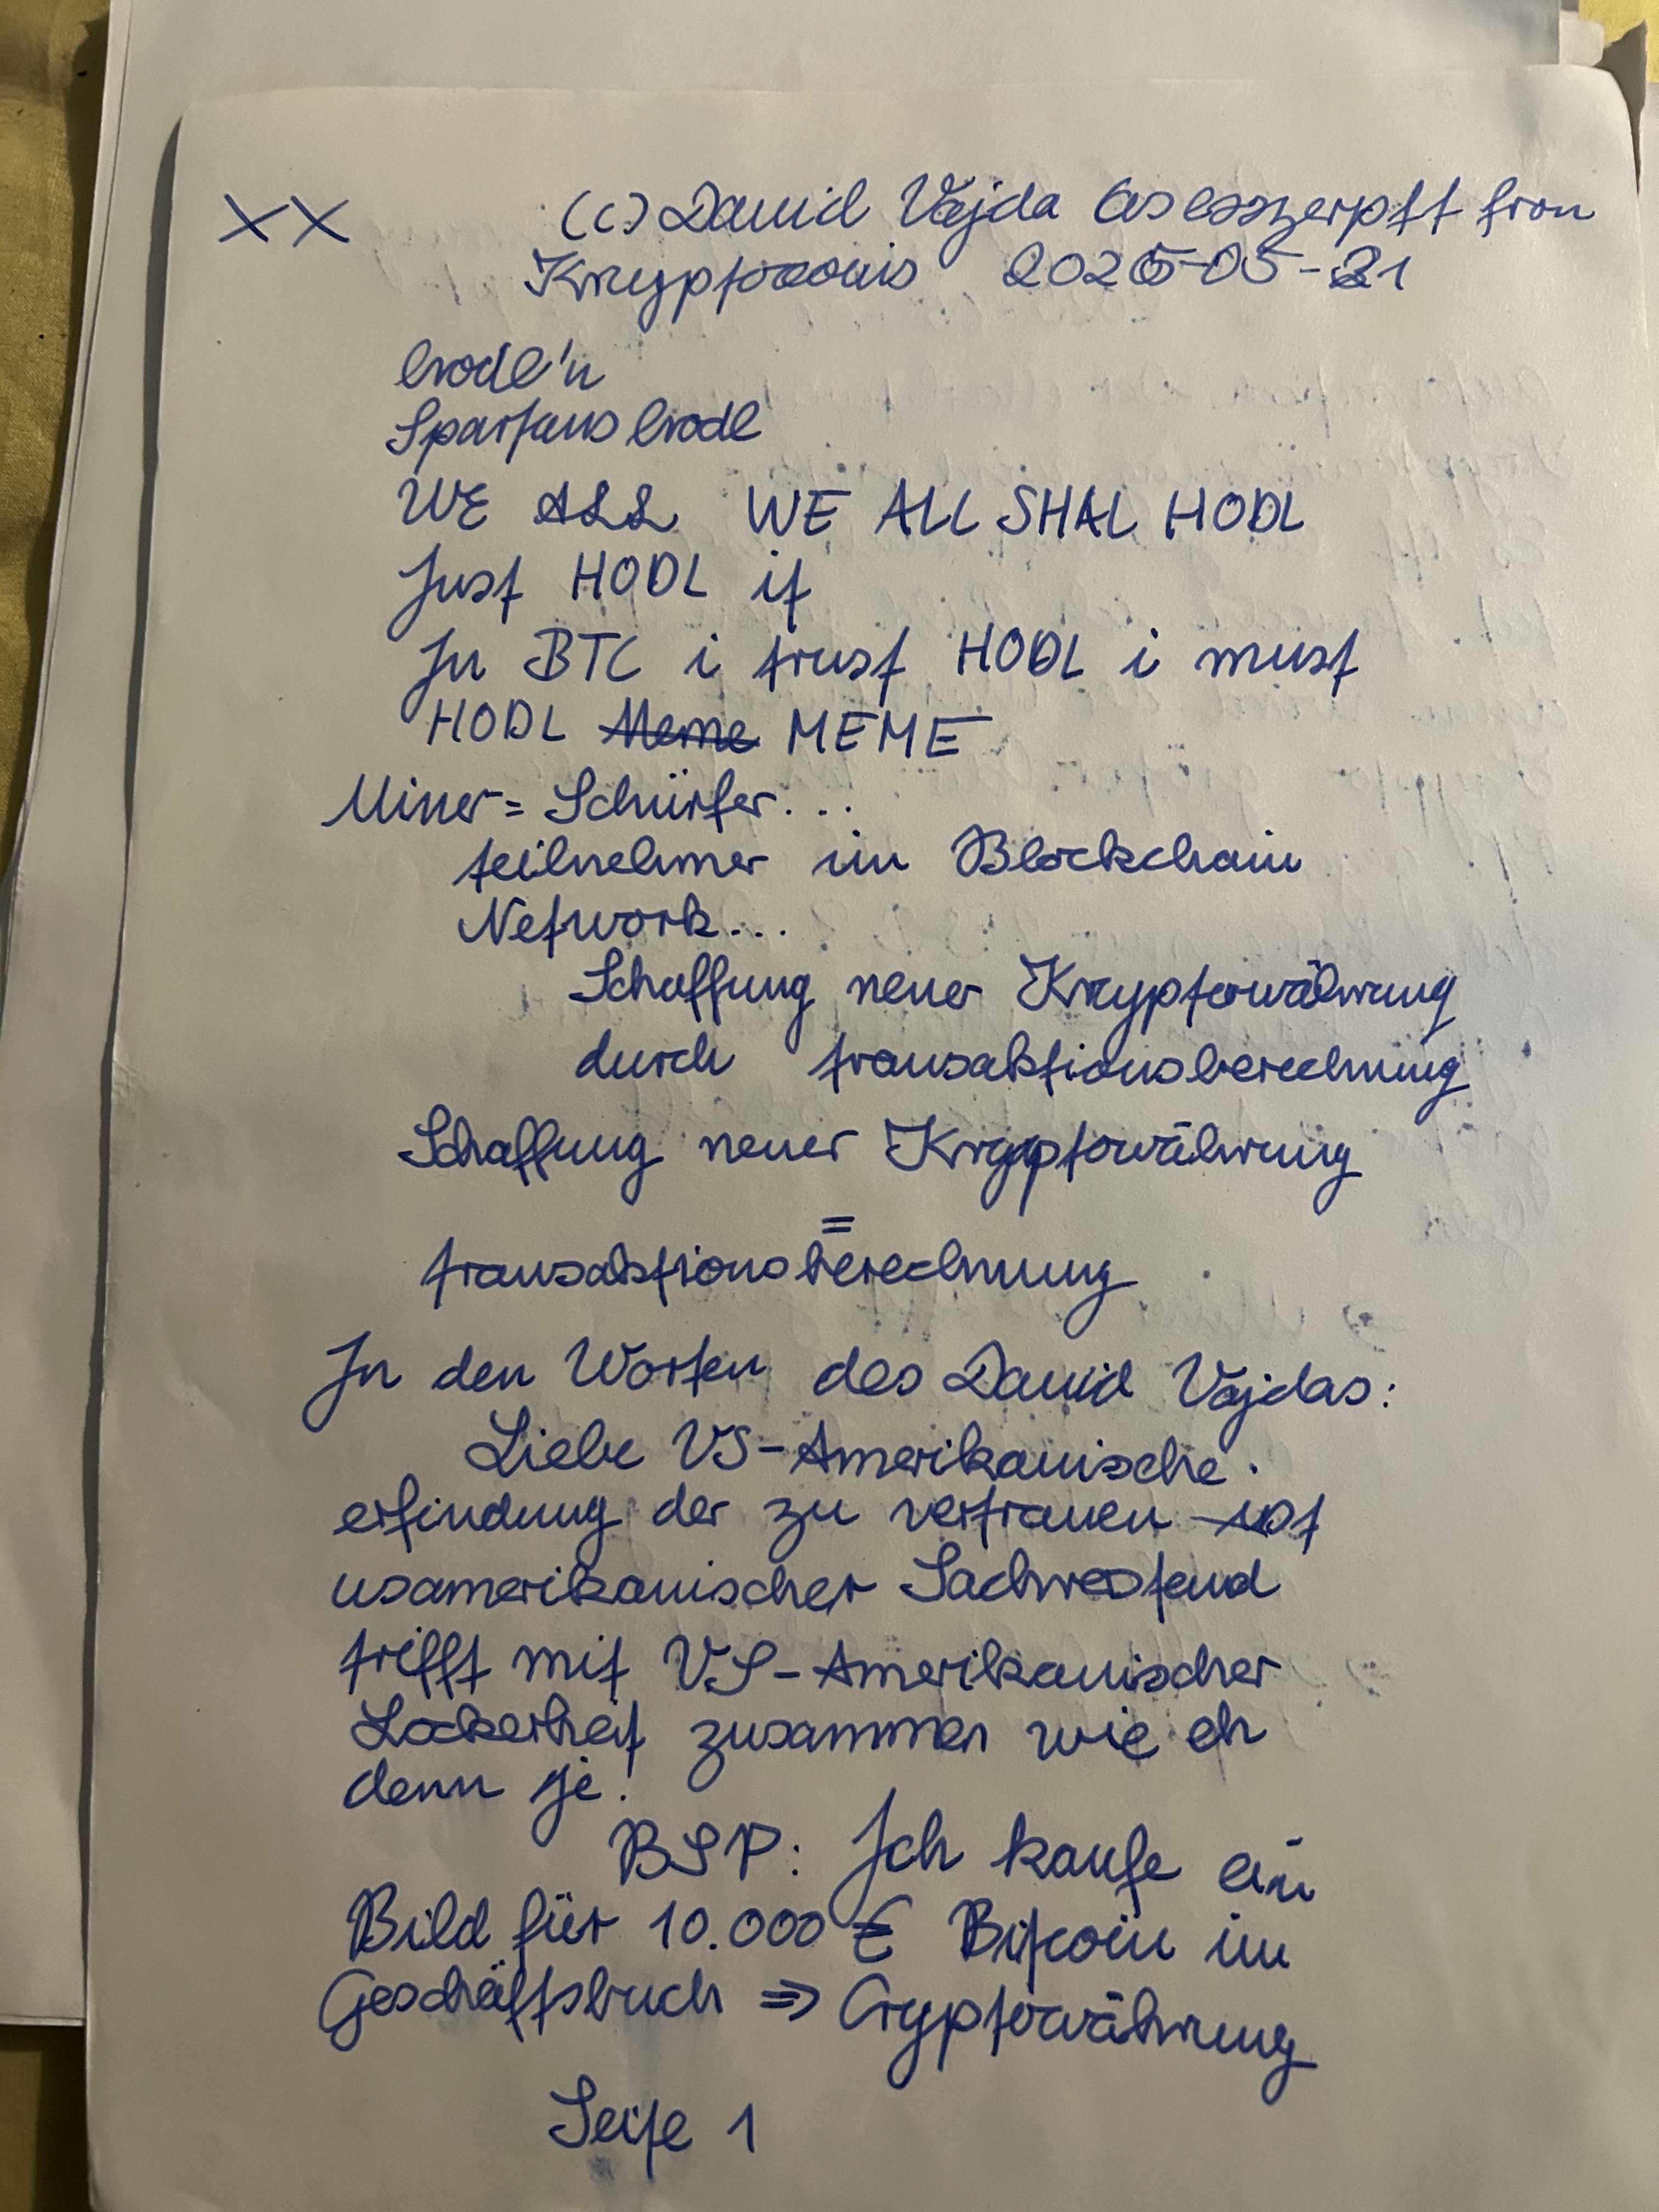 XX (c) David Vajda from
2026-05-21
hodl'n
Spartans hodl
WE ALL WE ALL SHAL HODL
Just HODL it
In BTC i trust HODL i must
HODL Meme MEME
Miner = Schürfer...
teilnehmer im Blockchain
Network...
Schaffung neuer Kryptowährung
durch transaktionsberechnung
Schaffung neuer Kryptowährung
=
transaktionsberechnung
In den Worten des David Vajdas:
Liebe US-Amerikanische
erfindung der zu vertrauen ist
usamerikanischer
trifft mit US-Amerikanischer
Lockerheit zusammen wie eh
denn je!
BSP: Ich kaufe ein
Bild für 10.000 € Bitcoin im
Geschäftsbuch => Cryptowährung
Seite 1